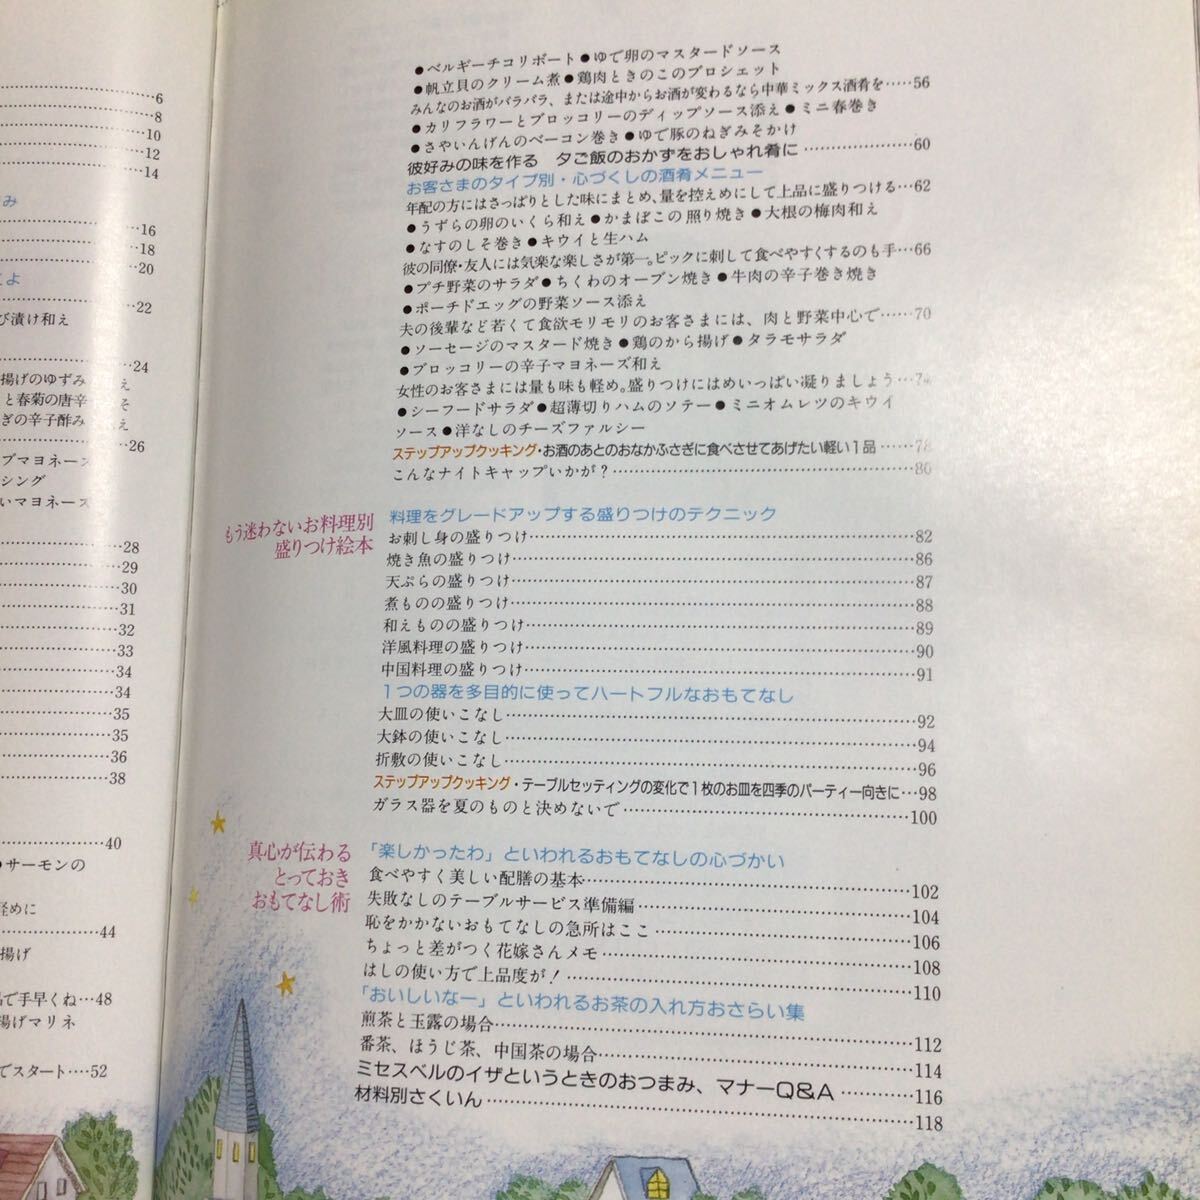 6
8
10
12
14
み
16
18
20
よ
22
び漬け和え
24
揚げのゆずみ
え
と春菊の唐辛
そ
ぎの辛子酢み
え
26
プマヨネーズ
シング
いマヨネーズ
28
29
30
31
32
33
34
34
35
35
36
38
40
サーモンの
軽めに
44
揚げ
で手早くね…48
揚げマリネ
でスタート…52
●ベルギーチコリボート●ゆで卵のマスタードソース
●帆立貝のクリーム煮●鶏肉ときのこのブロシェット
みんなのお酒がバラバラ、または途中からお酒が変わるなら中華ミックス酒肴を……56
●カリフラワーとブロッコリーのディップソース添え●ミニ春巻き
●さやいんげんのベーコン巻き●ゆで豚のねぎみそかけ
彼好みの味を作る　夕ご飯のおかずをおしゃれ肴に…………60
お客さまのタイプ別・心づくしの酒肴メニュー
年配の方にはさっぱりとした味にまとめ、量を控えめにして上品に盛りつける…62
●うずらの卵のいくら和え●かまぼこの照り焼き●大根の梅肉和え
●なすのしそ巻き●キウイと生ハム
彼の同僚・友人には気楽な楽しさが第一。ピックに刺して食べやすくするのも手…66
●プチ野菜のサラダ●ちくわのオーブン焼き●牛肉の辛子巻き焼き
●ポーチドエッグの野菜ソース添え
夫の後輩など若くて食欲モリモリのお客さまには、肉と野菜中心で……70
●ソーセージのマスタード焼き●鶏のから揚げ●タラモサラダ
●ブロッコリーの辛子マヨネーズ和え
女性のお客さまには量も味も軽め。盛りつけにはめいっぱい凝りましょう…74
●シーフードサラダ●超薄切りハムのソテー●ミニオムレツのキウイ
ソース●洋なしのチーズファルシー
ステップアップクッキング・お酒のあとのおなかふさぎに食べさせてあげたい軽い1品……78
こんなナイトキャップいかが？……………80
もう迷わないお料理別
盛りつけ絵本
料理をグレードアップする盛りつけのテクニック
お刺し身の盛りつけ……………82
焼き魚の盛りつけ……………86
天ぷらの盛りつけ……………87
煮ものの盛りつけ……………88
和えものの盛りつけ……………89
洋風料理の盛りつけ……………90
中国料理の盛りつけ……………91
1つの器を多目的に使ってハートフルなおもてなし
大皿の使いこなし……………92
大鉢の使いこなし……………94
折敷の使いこなし……………96
ステップアップクッキング・テーブルセッティングの変化で1枚のお皿を四季のパーティー向きに…98
ガラス器を夏のものと決めないで……………100
真心が伝わる
とっておき
おもてなし術
「楽しかったわ」といわれるおもてなしの心づかい
食べやすく美しい配膳の基本……………102
失敗なしのテーブルサービス準備編……………104
恥をかかないおもてなしの急所はここ……………106
ちょっと差がつく花嫁さんメモ……………108
はしの使い方で上品度が！……………110
「おいしいなー」といわれるお茶の入れ方おさらい集
煎茶と玉露の場合……………112
番茶、ほうじ茶、中国茶の場合……………114
ミセスベルのイザというときのおつまみ、マナーQ&A…………116
材料別さくいん……………118